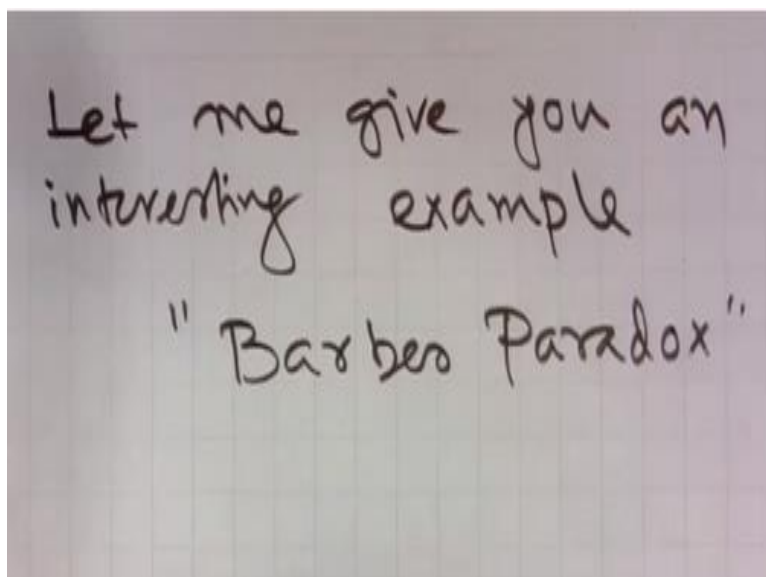 Let me give you an
interesting example
"Barber Paradox"